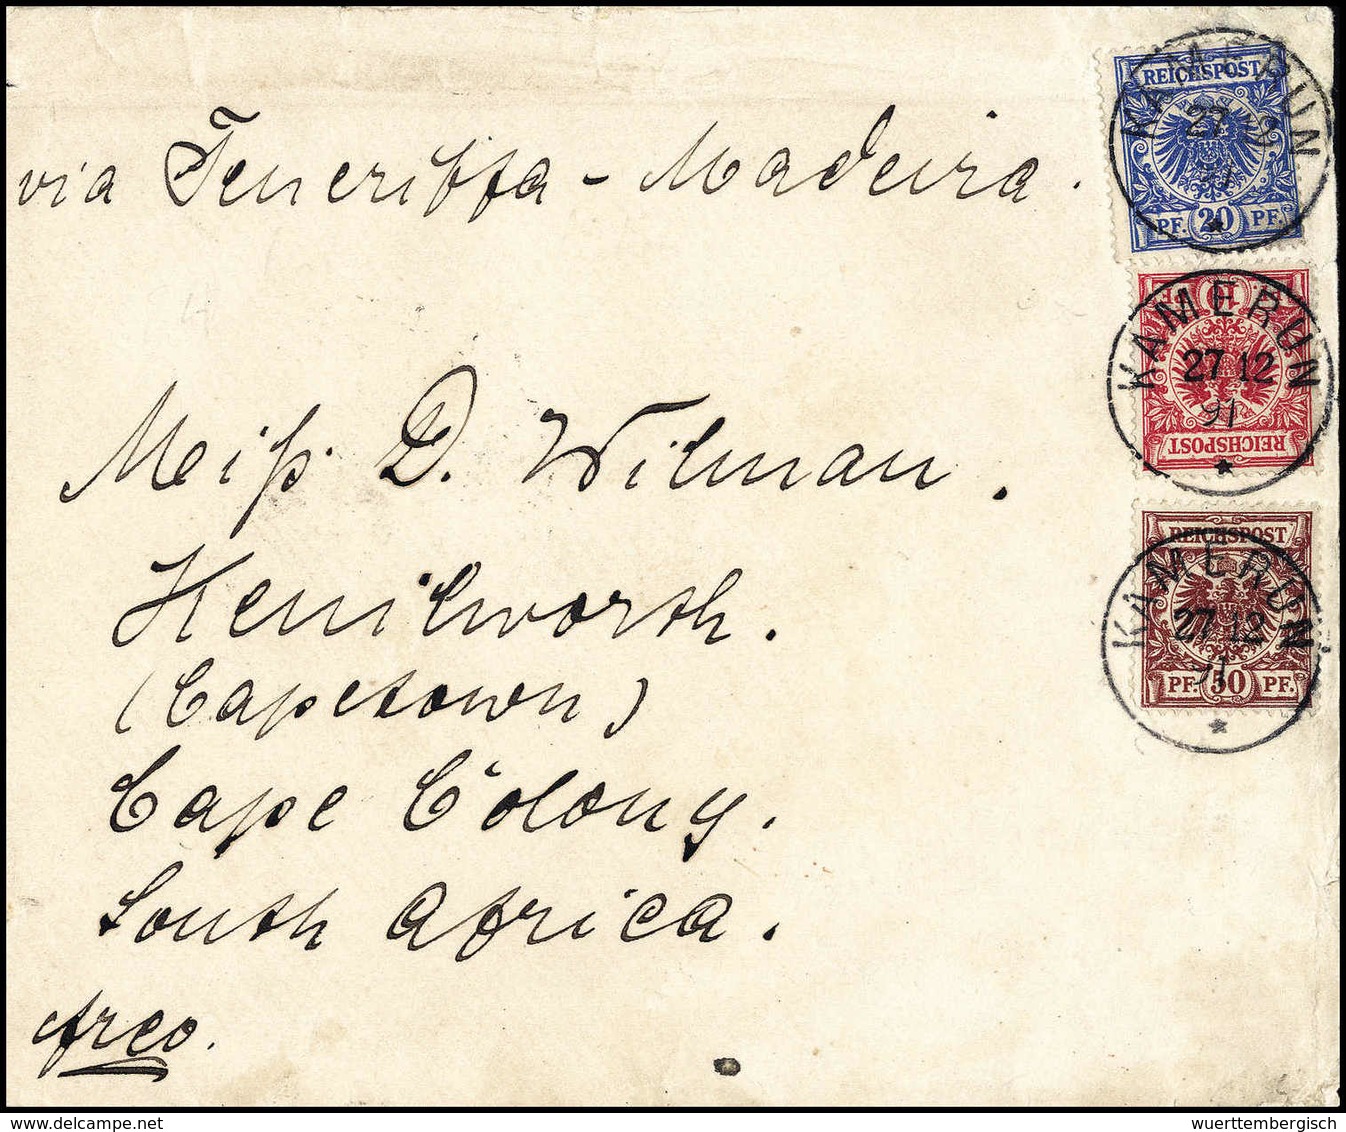 via Teneriffa - Madeira.
Miß D. Wilman.
Kenilworth.
(Capetown)
Cape Colony.
South Africa.
frco.
REICHSPOST
PF. 20 PF.
KAMERUN
27 12
91
PF. 10 PF.
REICHSPOST
KAMERUN
27 12
91
REICHSPOST
PF. 50 PF.
KAMERUN
27 12
91
wuerttembergisch